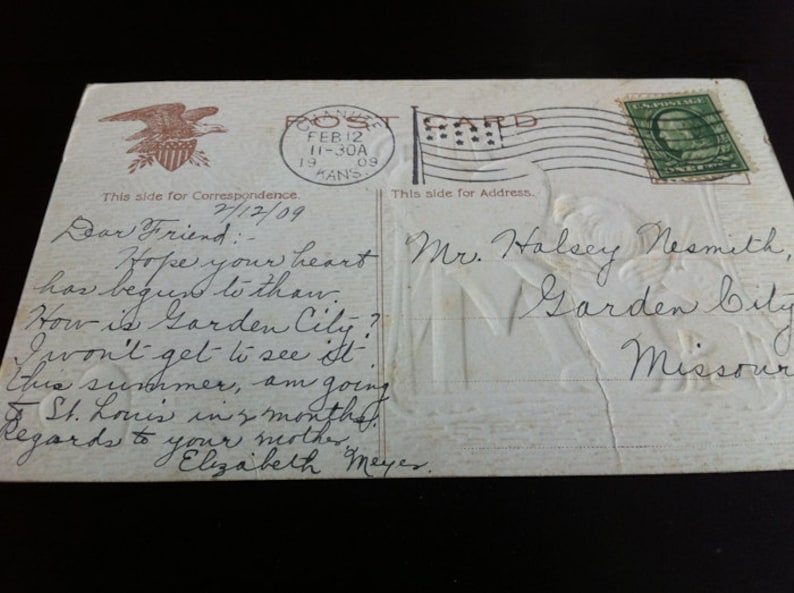 POST CARD
CHANUTE
FEB 12
11-30A
1909
KANS.
U.S. POSTAGE
This side for Correspondence.
This side for Address.
2/12/09
Dear Friend:-
Hope your heart
has begun to thaw.
How is Garden City?
I won't get to see it
this summer, am going
to St. Louis in 2 months.
Regards to your mother.
Elizabeth Meyer.
Mr. Halsey Nesmith,
Garden City
Missouri